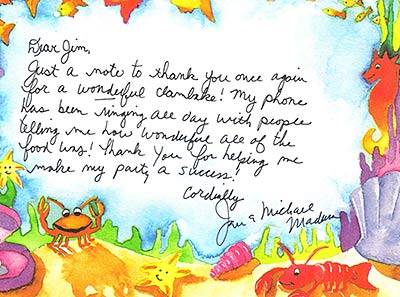 Dear Jim,
Just a note to thank you once again
for a wonderful clambake! My phone
has been ringing all day with people
telling me how wonderful all of the
food was! Thank You for helping me
make my party a success!
Cordially
& Michael